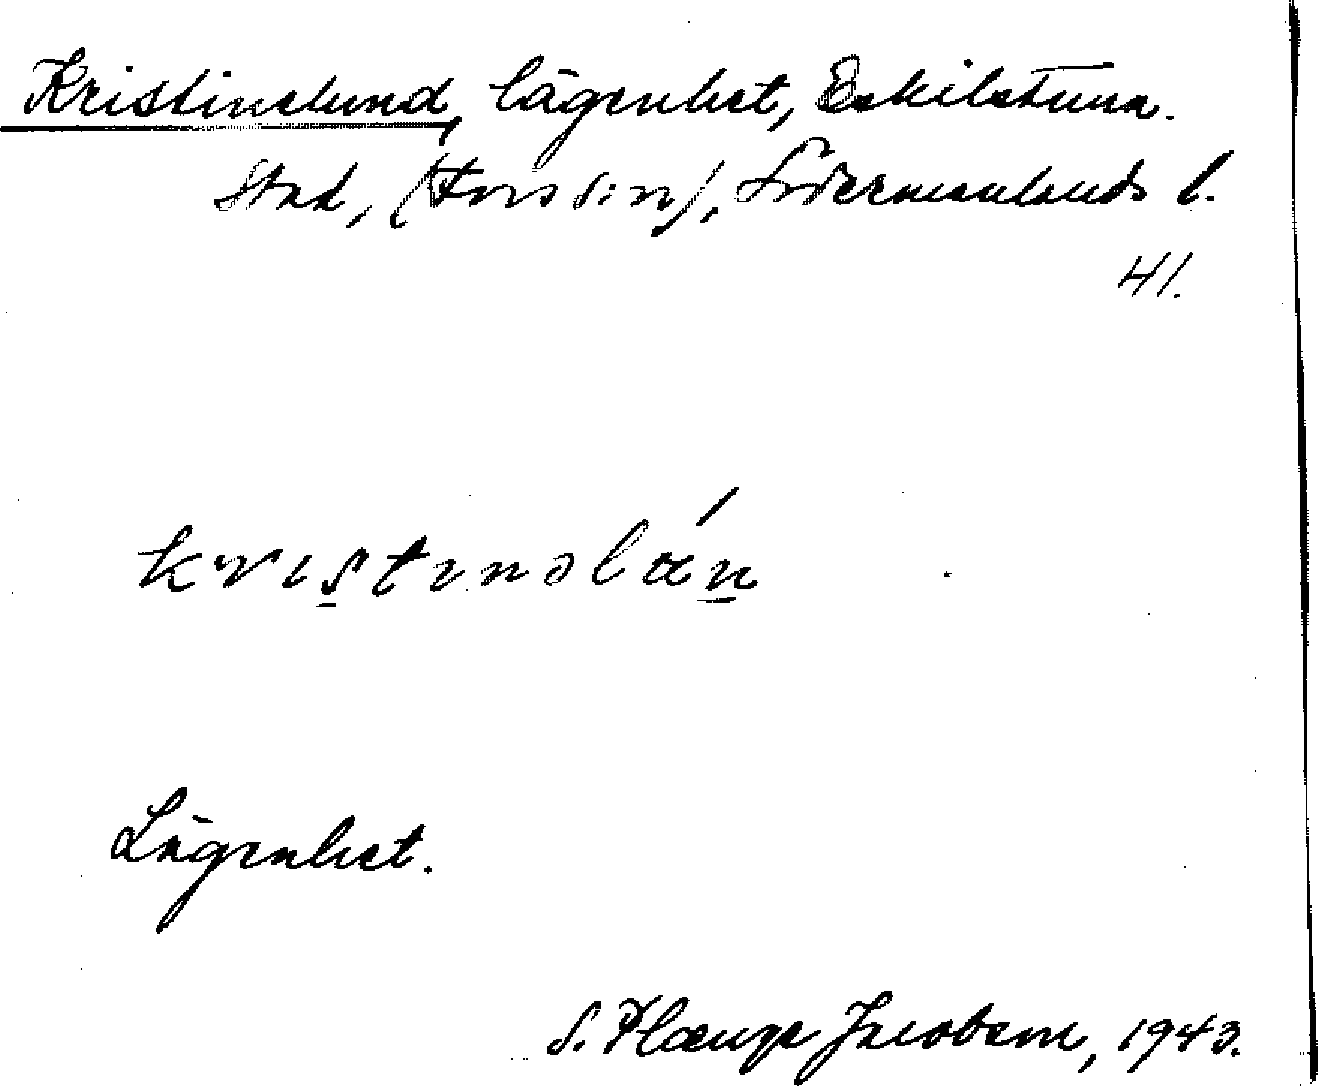 Kristinelund, lägenhet, Eskilstuna
stad, (Fors sn), Södermanlands l.
41.
kristinəlɷ́n
Lägenhet.
S. Plænge Jacobson, 1943.